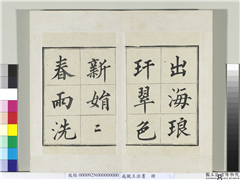 出海琅
玕翠色
新娟二
春雨洗